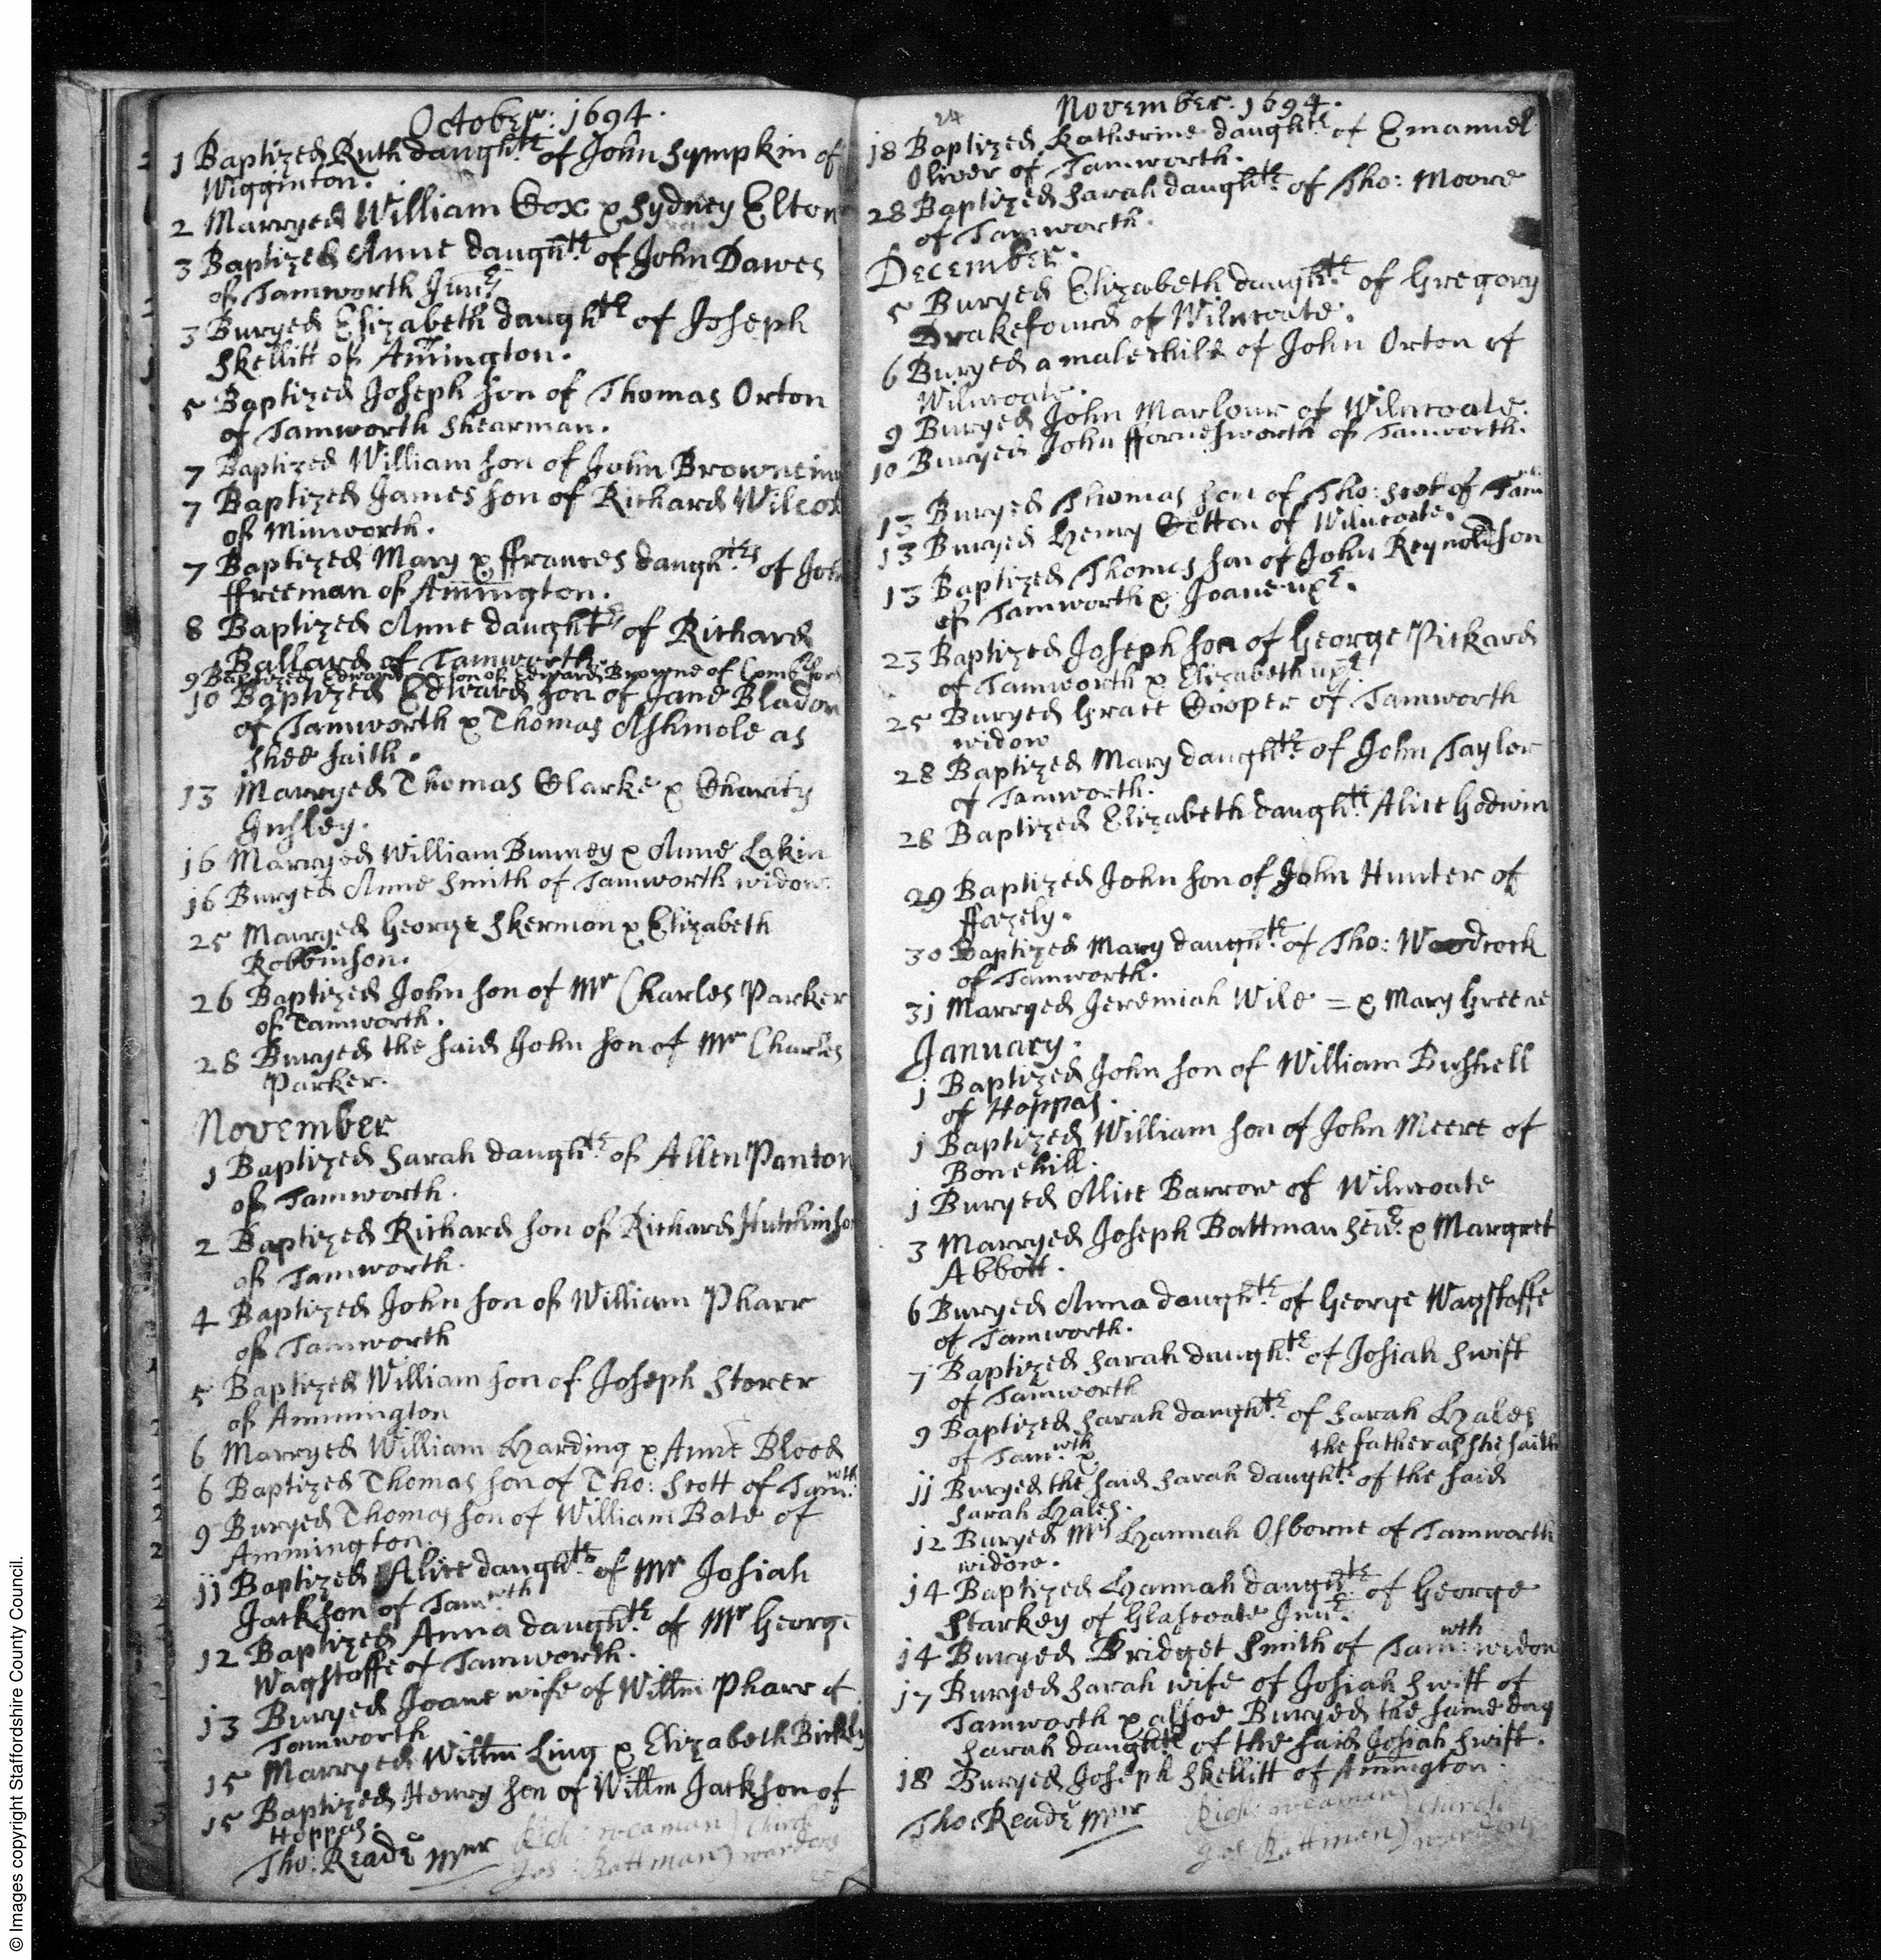 October: 1694.
1 Baptized Ruth daught.e of John Sympkin of
Wigginton.
2 Marryed William Cox & Sydney Elton
3 Baptized Anne daught.e of John Dawes
of Tamworth Jun.e
3 Buryed Elizabeth daught.e of Joseph
Skellitt of Amington.
5 Baptized Joseph son of Thomas Orton
of Tamworth Shearman.
7 Baptized William son of John
7 Baptized James son of Richard Wilcox
of Minworth.
7 Baptized Mary & ffrances daught.es of John
ffreeman of Amington.
8 Baptized Anne daught.e of Richard
Ballard of Tamworth.
9 Baptized Edward son of Edward Browne of
10 Baptized Edward son of Jane Bladon
of Tamworth & Thomas Ashmole as
shee saith.
13 Marryed Thomas Clarke & Charity
Insley.
16 Marryed William Binney & Anne Lakin
16 Buryed Anne Smith of Tamworth widow.
25 Marryed George Skermon & Elizabeth
Robbinson.
26 Baptized John son of Mr Charles Parker
of Tamworth.
28 Buryed the said John son of Mr Charles
Parker.
November
1 Baptized Sarah daught.e of Allen Panton
of Tamworth.
2 Baptized Richard son of Richard Hutchinson
of Tamworth.
4 Baptized John son of William Pharr
of Tamworth
5 Baptized William son of Joseph Storer
of Ammington
6 Marryed William Harding & Anne Blood
6 Baptized Thomas son of Tho: Scott of Tam:wth
9 Buryed Thomas son of William Bate of
Ammington.
11 Baptized Alice daught.e of Mr Josiah
Jackson of Tam:wth
12 Baptized Anna daught.e of Mr George
Wagstaffe of Tamworth.
13 Buryed Joane wife of Willm Pharr of
Tamworth
15 Marryed Willm Ling & Elizabeth
15 Baptized Henry son of Willm Jackson of
Hoppas.
Tho: Reade Mnr Rich: Weaman) Church
Jos: Battman) wardens
24 November. 1694.
18 Baptized Katherine daught.e of Emanuel
Oliver of Tamworth.
28 Baptized Sarah daught.e of Tho: Moore
of Tamworth.
December.
5 Buryed Elizabeth daught.e of Gregory
Drakefourd of Wilncoate.
6 Buryed a male child of John Orton of
Wilncoate.
9 Buryed John Marlour of Wilncoate.
10 Buryed John of Tamworth.
13 Buryed Thomas son of Tho: Scott of Tam:wth
13 Buryed Henry Cotton of Wilncoate.
13 Baptized Thomas son of John Reynoldson
of Tamworth & Joane uxe.
23 Baptized Joseph son of George Pickard
of Tamworth & Elizabeth uxe.
25 Buryed Grace Cooper of Tamworth
widow
28 Baptized Mary daught.e of John Taylor
of Tamworth.
28 Baptized Elizabeth daught.e Alice Godwin
29 Baptized John son of John Hunter of
ffazely.
30 Baptized Mary daught.e of Tho: Woodcock
of Tamworth.
31 Marryed Jeremiah Wile = & Mary Greene
January.
1 Baptized John son of William Bushell
of Hoppas.
1 Baptized William son of John Meere of
Bonehill.
1 Buryed Alice Barrow of Wilncoate
3 Marryed Joseph Battman Sen.e & Margret
Abbott.
6 Buryed Anna daught.e of George Wagstaffe
of Tamworth.
7 Baptized Sarah daught.e of Josiah Swift
of Tamworth
9 Baptized Sarah daught.e of Sarah Hales
of Tam:wth & the father as she saith
11 Buryed the said Sarah daught.e of the said
Sarah Hales.
12 Buryed Mrs Hannah Osborne of Tamworth
widow.
14 Baptized Hannah daught.e of George
Starkey of Glascoate Jun.e
14 Buryed Bridget Smith of Tam:wth widow
17 Buryed Sarah wife of Josiah Swift of
Tamworth & alsoe Buryed the same day
Sarah daught.e of the said Josiah Swift.
18 Buryed Joseph Skellitt of Amington.
Tho: Reade Mnr Rich: Weaman) Church
Jos: Battman) wardens
© Images copyright Staffordshire County Council.